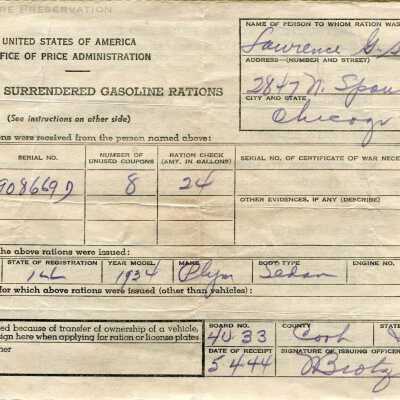 RE PRESERVATION
UNITED STATES OF AMERICA
FFICE OF PRICE ADMINISTRATION
SURRENDERED GASOLINE RATIONS
(See instructions on other side)
ons were received from the person named above:
NAME OF PERSON TO WHOM RATION WA
Lawrence G.
ADDRESS—(NUMBER AND STREET)
2847 N.
CITY AND STATE
Chicago
SERIAL NO.
NUMBER OF UNUSED COUPONS
RATION CHECK (AMT. IN GALLONS)
SERIAL NO. OF CERTIFICATE OF WAR NECE
908669D
8
24
OTHER EVIDENCES, IF ANY (SPECIFY)
the above rations were issued:
STATE OF REGISTRATION
YEAR MODEL
MAKE
BODY TYPE
ENGINE NO.
Ill
1934
Plym
Sedan
for which above rations were issued (other than vehicles):
ed because of transfer of ownership of a vehicle,
sign here when applying for ration or license plates
ner
BOARD NO.
COUNTY
STATE
40 33
Cook
DATE OF RECEIPT
SIGNATURE OF ISSUING OFFICER
5 4 44